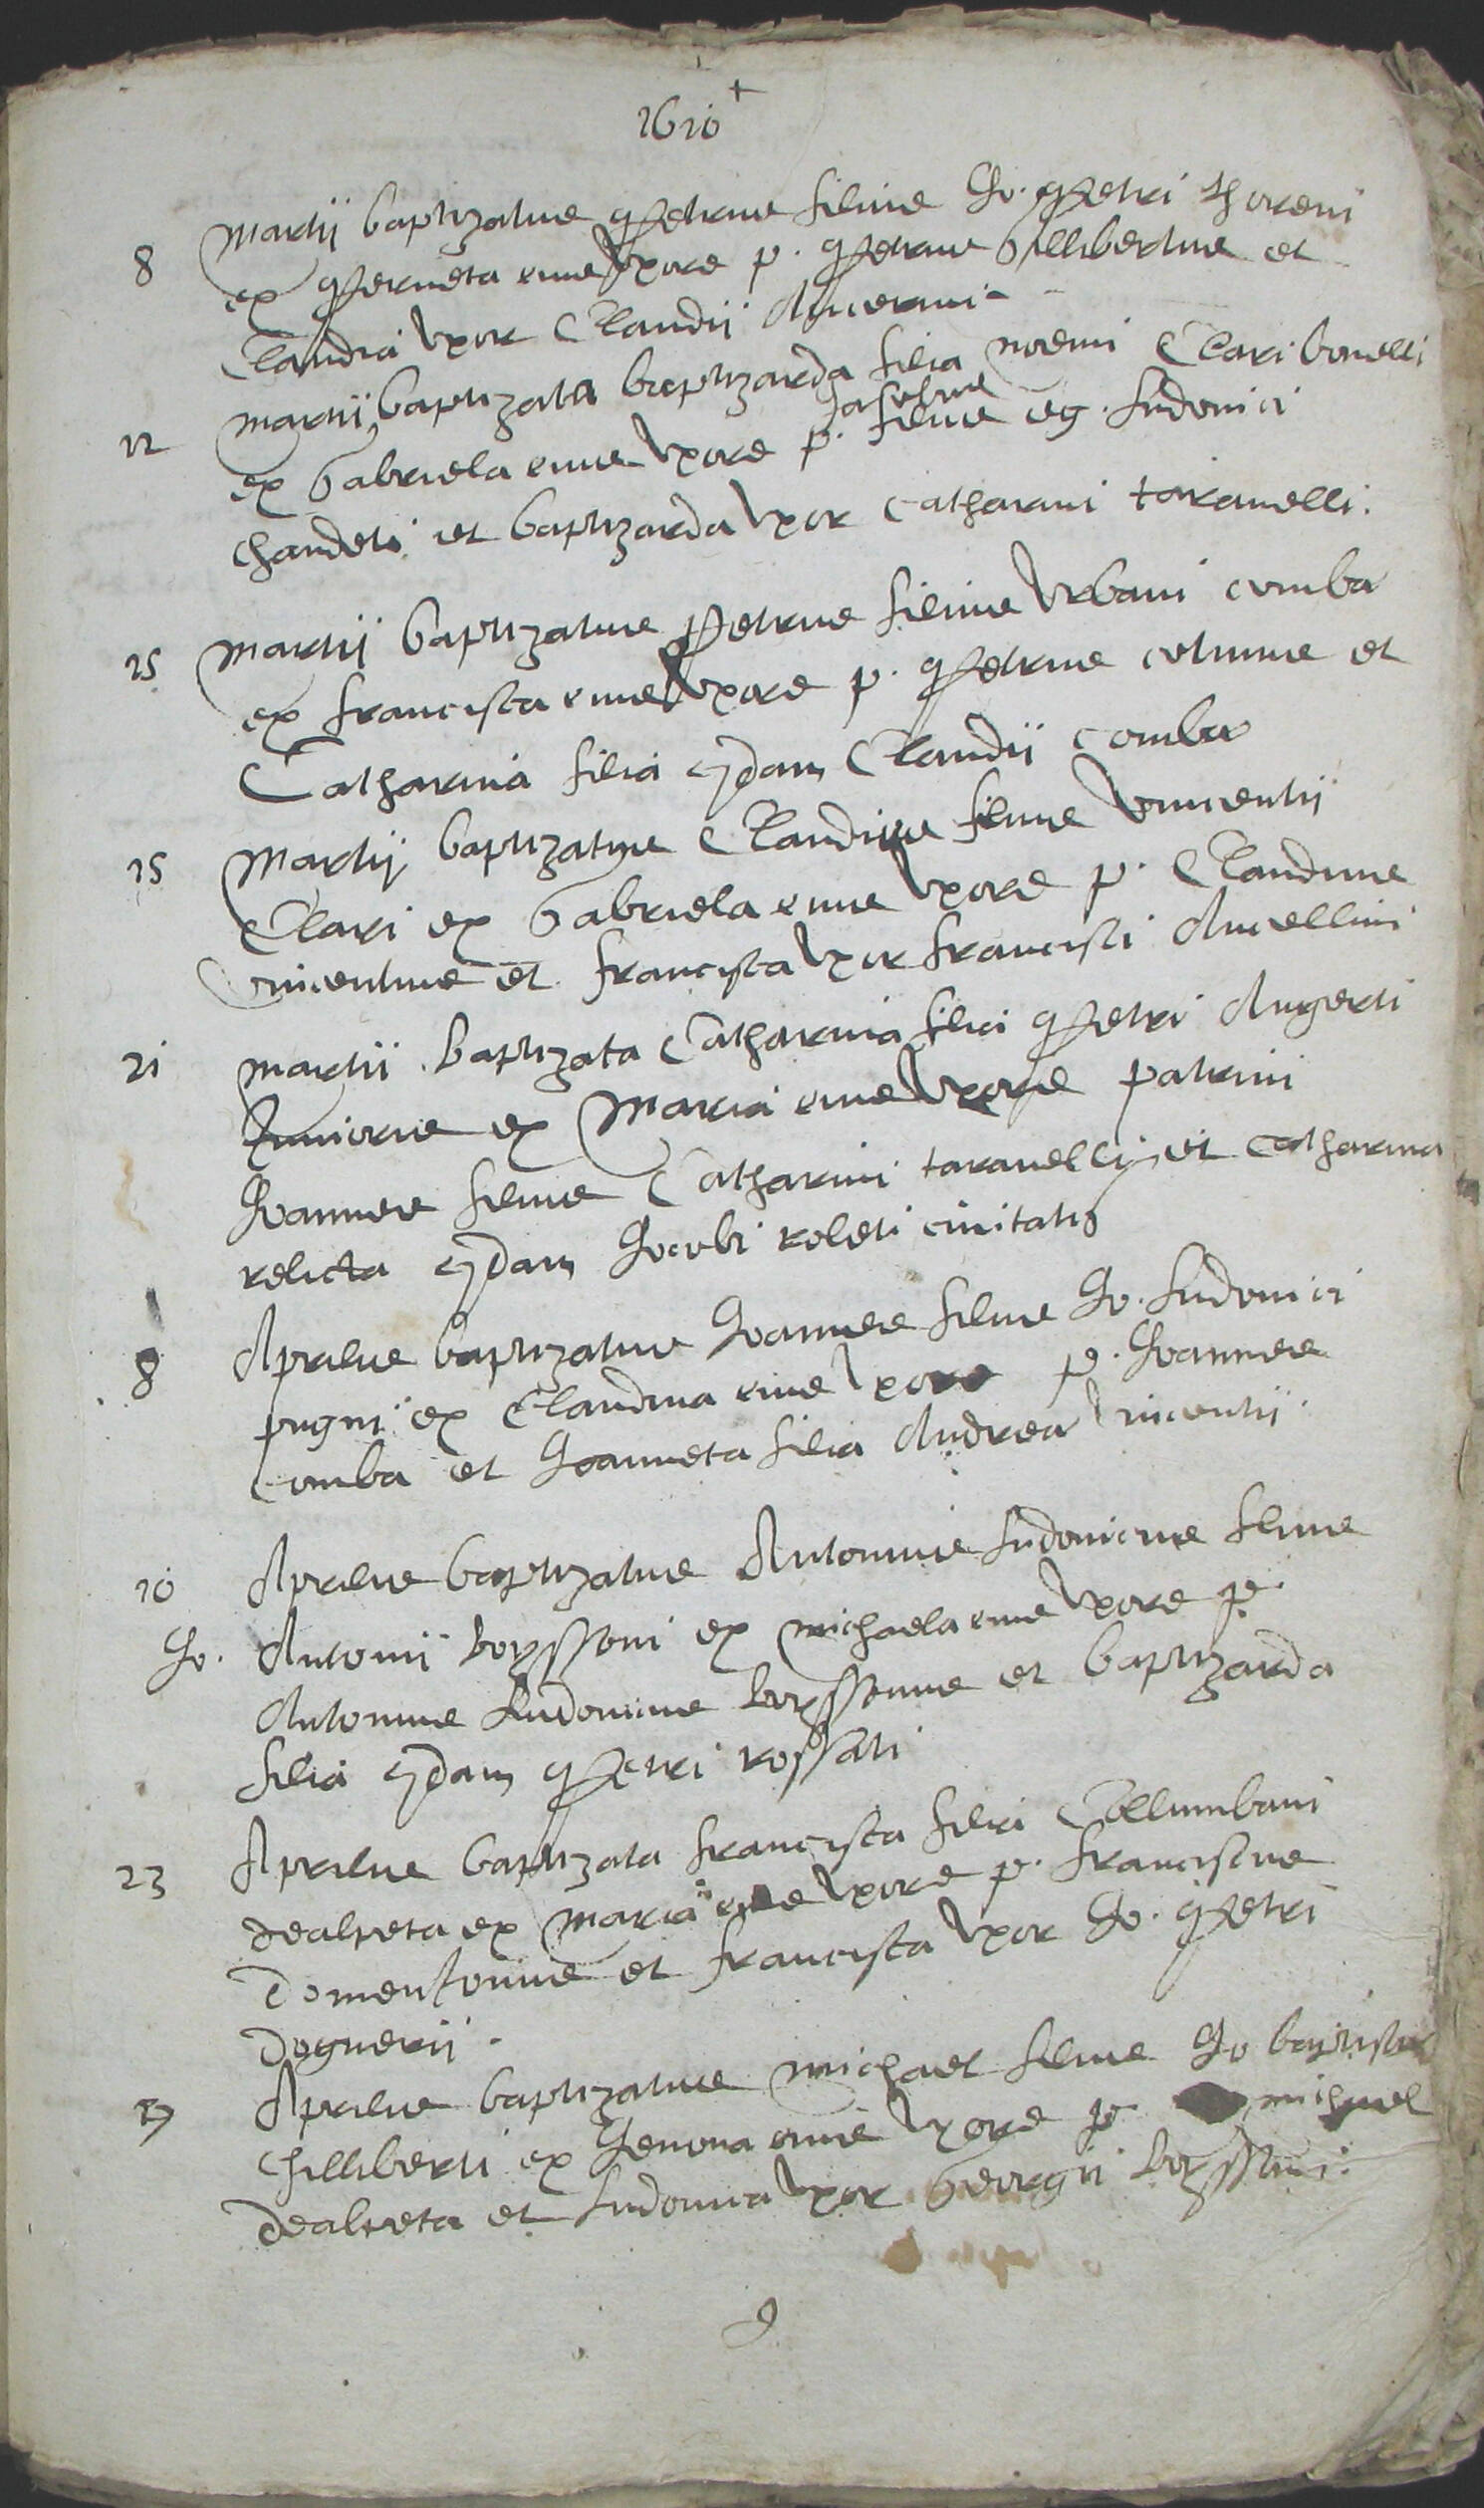 1610
8 Martii baptizatus Petrus filius Jo. Petri thoreni
ex Perneta eius Uxore p. Petrus Gillibertus et
Claudia Uxor Claudii Ancerini
12 Martii baptizata baptizarda filia noemi Clari bonelli
ex Gabriela eius Uxore p. filius eg. Ludovici
chandeti et baptizarda Uxor Catharini taranelli.
15 Martii baptizatus Petrus filius Urbani comba
ex francisca eius Uxore p. Petrus et
Catharina filia qdam Claudii comba
15 Martij baptizatus Claudius filius Vincentii
Clari ex Gabriela eius Uxore p. Claudius
Vincentius et francisca Uxor francisci Ancellini
21 Martii baptizata Catharina filia Petri Angerti
Junioris ex Maria eius Uxore patrini
Joannes filius Catharini taranelli et Catharina
relicta qdam Jacobi roleti civitatis
8 Aprilis baptizatus Joannes filius Jo. Ludovici
pugni ex Claudina eius Uxore p. Joannes
comba et Joanneta filia Andrea Vincentii
10 Aprilis baptizatus Antonius Ludovicus filius
Jo. Antonii boyssoni ex Michaela eius Uxore p.
Antonius Ludovicus boyssonus et baptizarda
filia qdam Petri rossati
23 Aprilis baptizata francisca filia Collumbani
dealpeta ex Maria eius Uxore p. franciscus
Domentonus et francisca Uxor Jo. Petri
Dognerii.
Aprilis baptizatus Michael filius Jo baptista
chilliberti ex Genona eius Uxore p. michael
dealpeta et Ludovica Uxor Georgii boyssoni.